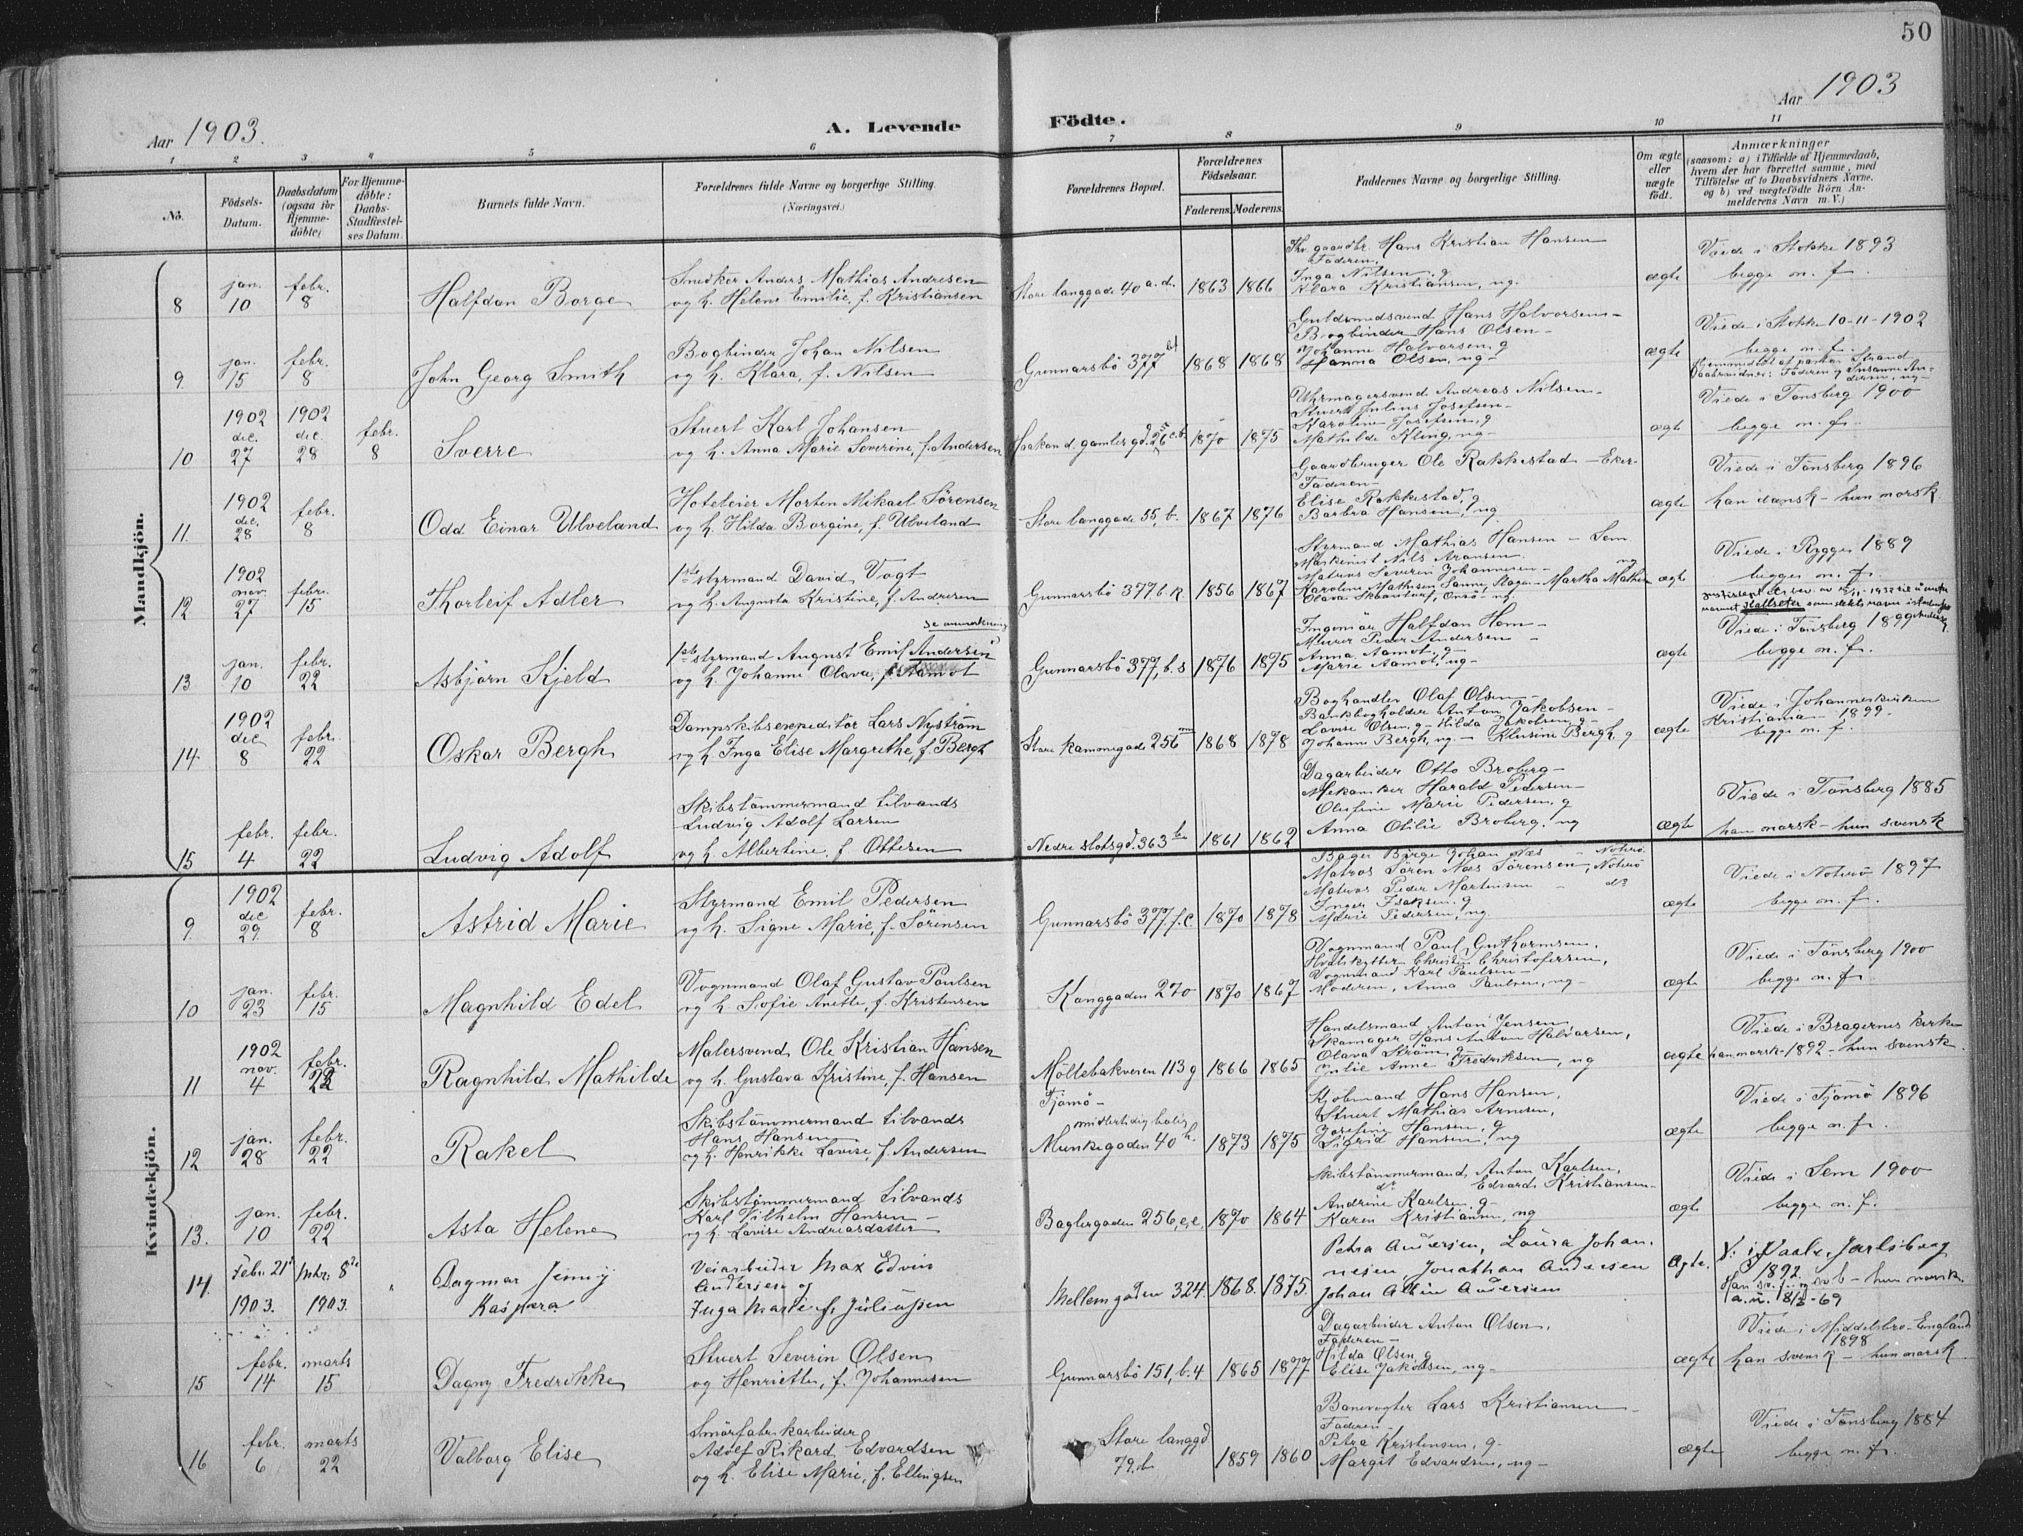 50
Aar 1903.
A. Levende
Födte.
Aar 1903
1 2 3 4 5 6 7 8 9 10 11
No.
Födsels-Datum.
Daabsdatum (ogsaa for Hjemme-döbte)
For Hjemme-döbte: Daabs-Stadfæstel-ses Datum.
Barnets fulde Navn.
Forældrenes fulde Navne og borgerlige Stilling.
(Næringsvei.)
Forældrenes Bopæl.
Forældrenes Födselsaar.
Faderens. Moderens.
Faddernes Navne og borgerlige Stilling.
Om ægte eller uægte födt.
Anmærkninger
(saasom: a) i Tilfælde af Hjemmedaab,
hvem der har forrettet samme, med
Tilföielse af to Daabsvidners Navne,
og b) ved uægtefödte Börn An-
melderens Navn m. V.)
Mandkjön.
8 jan. 10 febr. 8 Halfdan Borge
Snedker Anders Mathias Andresen
og h. Helene Emilie, f. Kristiansen
Store langgade 40 a.d. 1863 1866
gaardbr. Hans Kristian Hansen
Faderen,
Inga Nilsen, g
Klara Kristiansen, ug.
ægte
Viede i Stokke 1893
begge n. f.
9. jan. 15 febr. 8 John Georg Smith
Bogbinder Johan Nilsen
og h. Klara, f. Nilsen
Gunnarsbö 377 1868 1868
Guldsmedsvend Hans Halvorsen-
Bogbinder Hans Olsen-
Johanne Halvorsen, g
Hanna Olsen, ug-
ægte
Viede i Stokke 10-11-1902
begge n. f.
10 1902 dec. 27 1902 dec. 28 febr. 8 Sverre
Stuert Karl Johansen
og h. Anna Marie Severine, f. Andersen
Haakon d. gamles gd. 26 1870 1875
Uhrmagersvend Andreas Nilsen-
Stuert Julius Josefsen-
Karoline Josefsen, g
Mathilde Kling, ug-
ægt
Hjemmedöbt af pastor Strand
Daabsvidner: Faderen og Susanne An-
dersen, ug-
Viede i Tönsberg 1900
begge n. f.
11. 1902 dec. 28 febr. 8 Odd Einar Ulveland
Hoteleier Morten Mikael Sörensen
og h. Hilda Borgine, f. Ulveland
Store langgade 55, b. 1867 1876
Gaardbruger Ole Rakkestad - Eker-
Faderen-
Elise Rakkestad, g
Barbra Hansen, ug.
ægte
Viede i Tönsberg 1896
han dansk - hun norsk
12 1902 nov. 27 febr. 15 Thorleif Adler
1ste styrmand David Vogt
og h. Augusta Kristine, f. Andresen
Gunnarsbö 377 b. R 1856 1867
Styrmand Mathias Hansen - Sem
Maskinist Nils Aronsen.
Matros Severin Johannesen-
ægte
Viede i Rygge 1889
begge n. f.
13 jan. 10 febr. 22 Asbjörn Kjeld
se anmerkning
1ste styrmand August Emil Andersen
og h. Johanne Olava, f. Aamot
Gunnarsbö 377, b. s 1876 1875
Ingeniör Halfdan Hom-
Murer Peder Andersen-
Anna Aamot, g-
Marie Aamot, ug-
ægte
Viede i Tönsberg 1899
begge n. f.
14 1902 dec 8 febr. 22 Oskar Bergh
Dampskibsexpeditör Lars Nyström
og h. Inga Elise Margrethe, f. Bergh
Store kammegade 256 1868 1878
Boghandler Olaf Olsen-
Banksbogholder Anton Jakobsen-
Lovise Olsen, g - Hilda Jakobsen, g-
Johanne Bergh, ug- Klusine Bergh, g
ægte
Viede i Johanneskirken
Kristiania - 1899.
begge n. f.
15 febr. 4 febr. 22 Ludvig Adolf
Skibstömmermand tilvands
Ludvig Adolf Larsen
og h. Albertine, f. Ottesen
Nedre slotsgd. 363 1861 1862
Dagarbeider Otto Broberg-
Mekaniker Harald Pedersen-
Olufine Marie Pedersen, g
Anna Otilie Broberg, ug
ægte
Viede i Tönsberg 1885
han norsk - hun svensk
Kvindekjön.
9. 1902 dec 29. febr. 8 Astrid Marie
Styrmand Emil Pedersen
og h. Signe Marie, f. Sörensen
Gunnarsbö 377. f. c. 1870 1878
Bager Börge Johan Næs - Nöterö
Matros Sören Næs Sörensen, Nöterö
Matros Peder Martinsen - do
Inger Isaksen, g
Marie Pedersen, ug.
ægte
Viede i Nöterö 1897
begge n. f.
10 jan. 23 febr. 15 Magnhild Edel
Vognmand Olaf Gustav Paulsen
og h. Sofie Anette, f. Kristensen
Kanggaden 270 1870 1867
Vognmand Paul Guthormsen,
Hvalskytter Christen Christofersen,
Vognmand Karl Paulsen-
Moderen, Anna Paulsen, ug-
ægte
Viede i Tönsberg 1900
begge n. f.
11 1902 nov. 4 febr. 22 Ragnhild Mathilde
Malersvend Ole Kristian Hansen
og h. Gustava Kristine, f. Hansen
Möllebakveien 113 g 1866 1865
Handelsmand Anton Jensen,
Skomager Hans Anton Halvorsen,
Olava Ström, g
Julie Anne Fredriksen, ug
ægte
Viede i Bragernes kirke
han norsk - 1892 - hun svensk.
12 jan. 28 febr. 22 Rakel
Skibstömmermand tilvands
Hans Hansen
og h. Henrikke Lovise, f. Andersen
Tjömö-
midlertidig bolig
Munkegaden 40 h. 1873 1875
Kjöbmand Hans Hansen,
Stuert Mathias Arnesen,
Josefine Hansen, g
Sigrid Hansen, ug
ægte
Viede i Tjömö 1896
begge n. f.
13. jan. 10 febr. 22 Asta Helene
Skibstömmermand tilvands
Karl Vilhelm Hansen-
og h. Lovise Andreasdatter
Baglergaden 256, e, e, 1870 1864
Skibstömmermand, Anton Karlsen,
do Edvard Kristiansen-
Andrine Karlsen, g-
Karen Kristiansen, ug
ægte
Viede i Sem 1900
begge n. f.
14. Febr. 21de 1903. Mrs. 8de 1903. Dagmar Jenny Kaspara
Veiarbeider Max Edvin
Andersen og
Inga Marie f. Juliussen
Mellemgaden 324. 1868. 1875.
Petra Andersen, Laura Johan-
nesen, Jonathan Andersen
Johan Albin Andersen
Ægte.
V. i Vaale, Jarlsberg
1892.
15 febr. 14 marts 15 Dagny Fredrikke
Stuert Severin Olsen
og Henriette, f. Johannesen
Gunnarsbö 151, b. 4 1865 1877
Dagarbeider Anton Olsen,
Faderen-
Hilda Olsen, g
Elise Jakobsen, ug-
ægte
Viede i Middelsbro-England
1898
han svensk - hun norsk
16 febr. 6 marts 22 Valborg Elise
Smörfabrikarbeider
Adolf Rikard Edvardsen
og h. Elise Marie, f. Ellingsen
Store langgd 79. b 1859 1860
Banevogter Lars Kristiansen-
Faderen-
Petra Kristensen, g.
Margit Edvardsen, ug-
ægte
Viede i Tönsberg 1884
begge n. f.